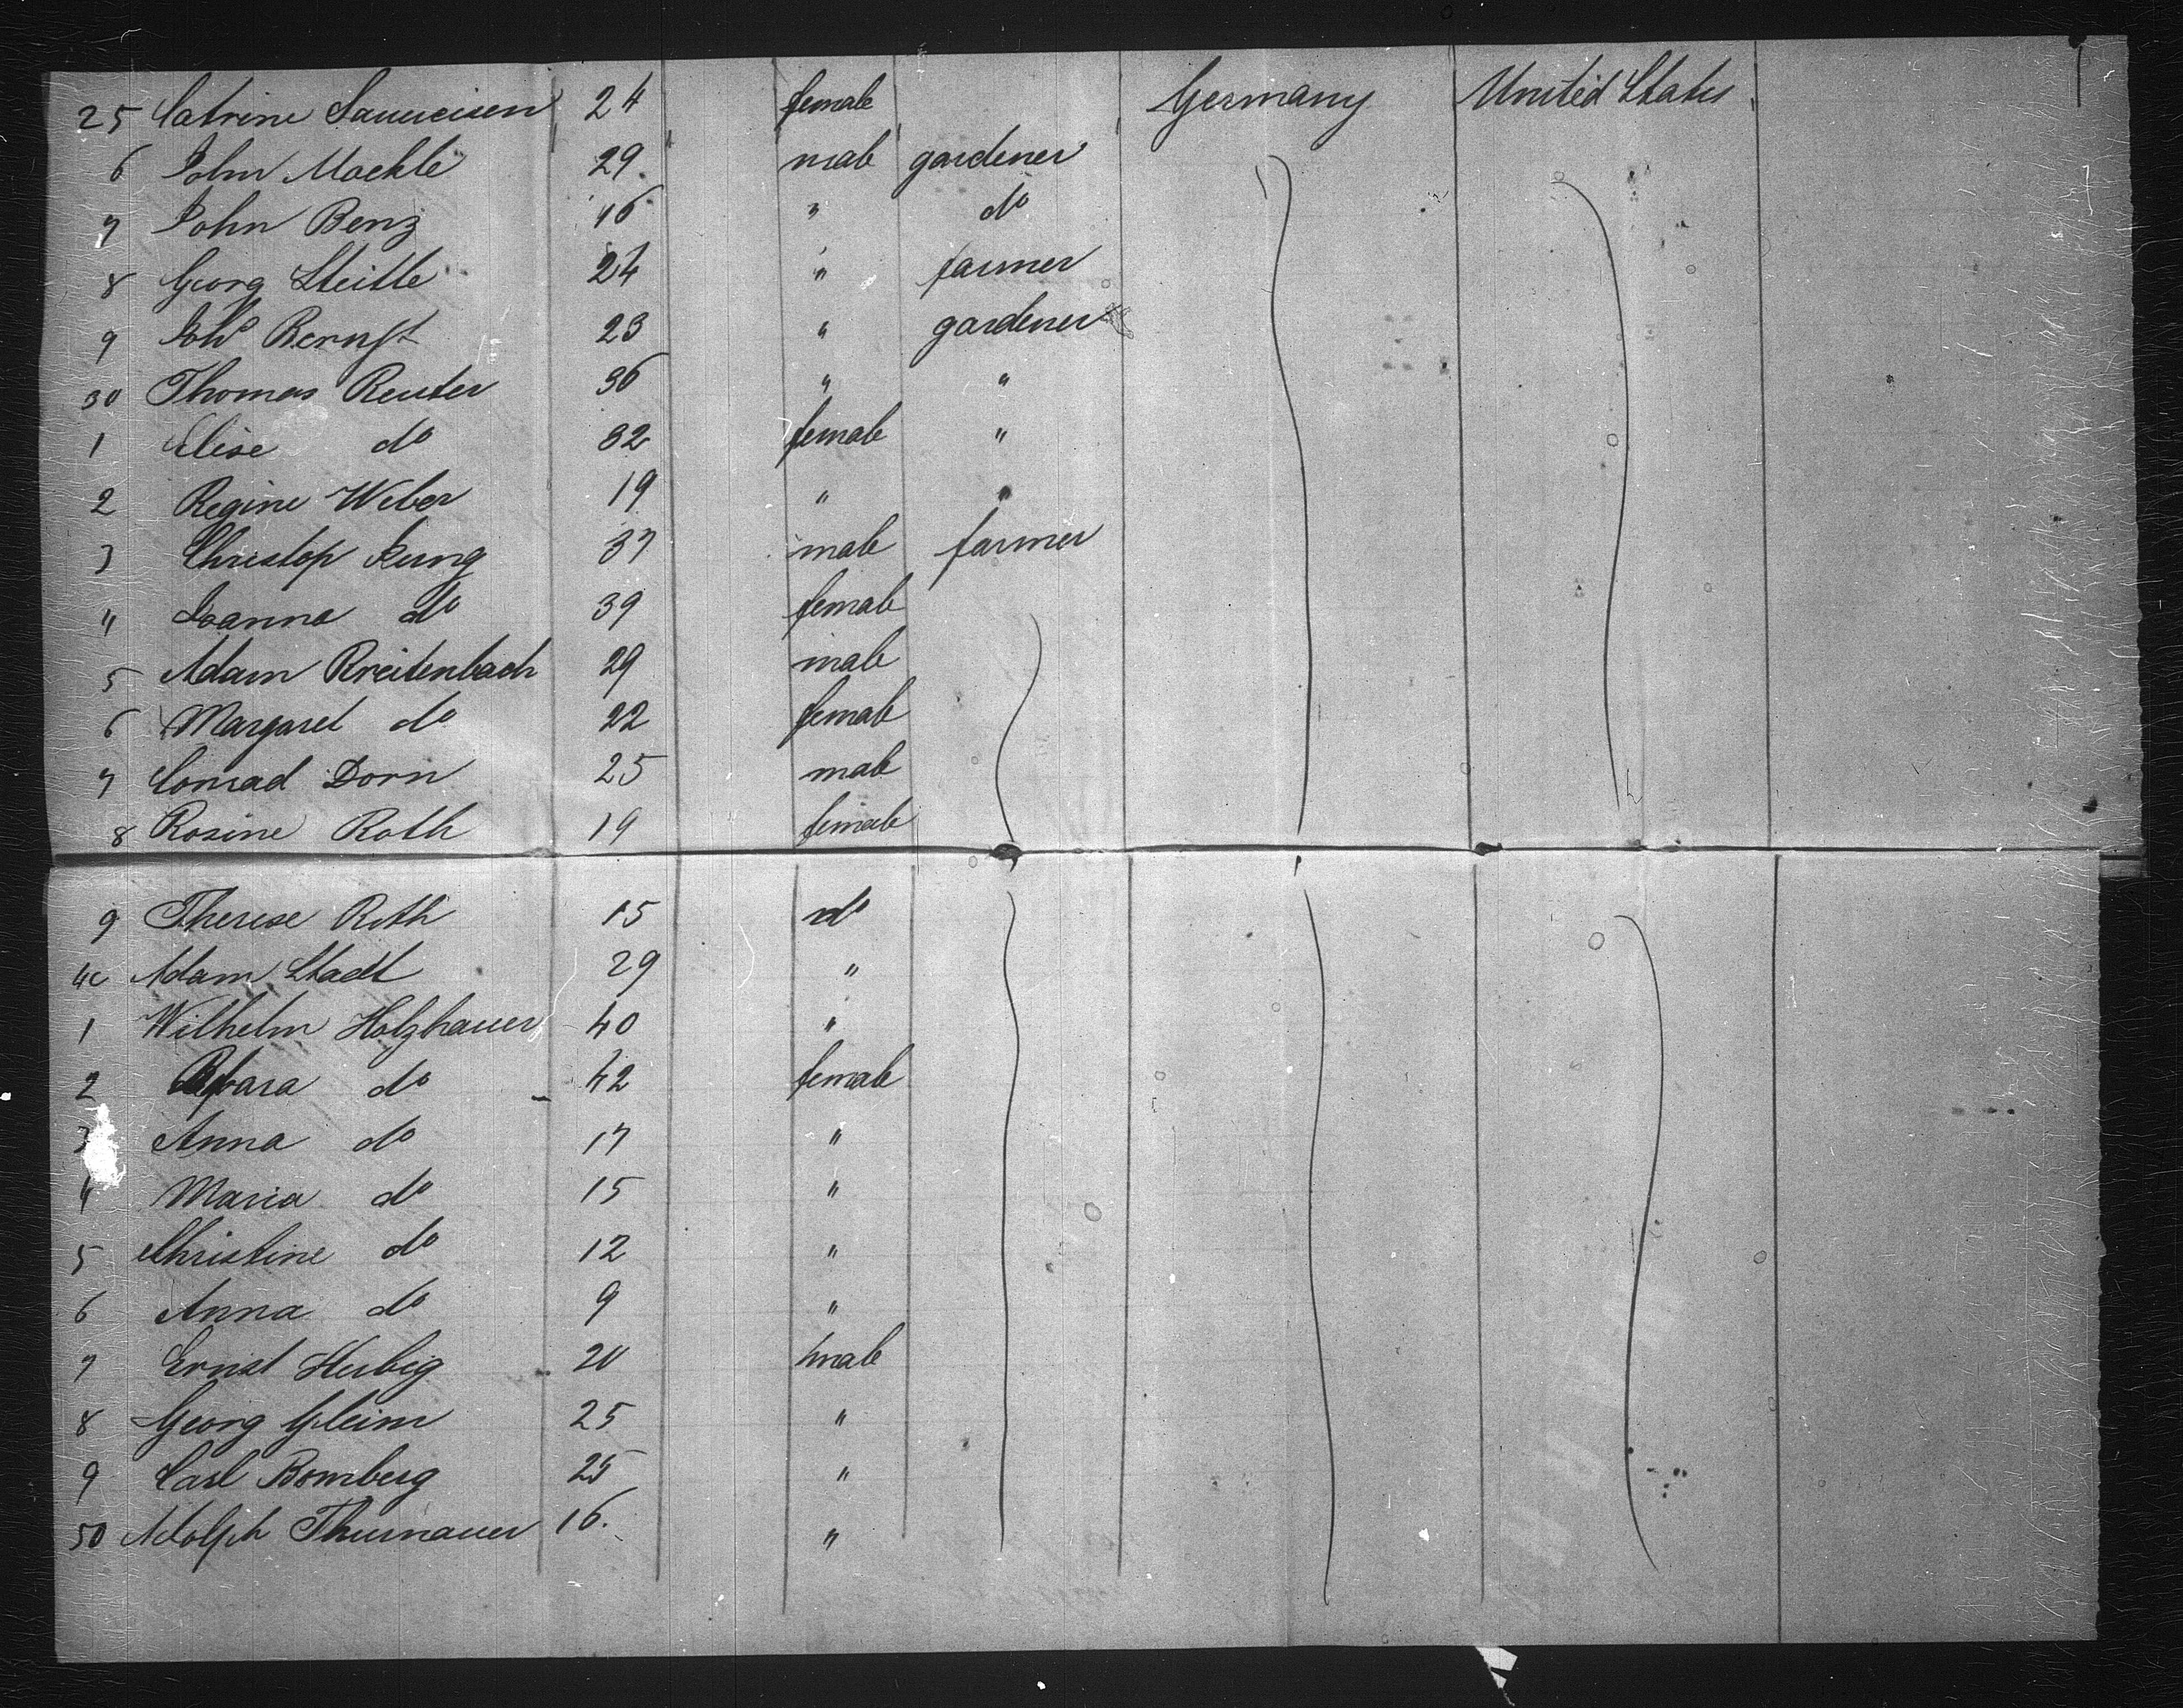 25 Catrine Saureisen 24 female Germany United States
6 John Maehle 29 male gardener
7 John Benz 46 " do
8 Georg Steitle 24 " farmer
9 Joh Bernst 23 " gardener
30 Thomas Reuter 36 " "
1 Elise do 32 female "
2 Regine Weber 19 " "
3 Christop Jung 37 male farmer
4 Joanna do 39 female
5 Adam Breitenbach 29 male
6 Margaret do 22 female
7 Conrad Dorn 25 male
8 Rosine Roth 19 female
9 Therese Roth 15 do
40 Adam Stadt 29 "
1 Wilhelm Holzhauer 40 "
2 do 42 female
3 Anna do 17 "
4 Maria do 15 "
5 Christine do 12 "
6 Anna do 9 "
7 Ernst Herbig 20 male
8 Georg Gleim 25 "
9 Carl Bomberg 25 "
50 Adolph Thurnauer 16. "